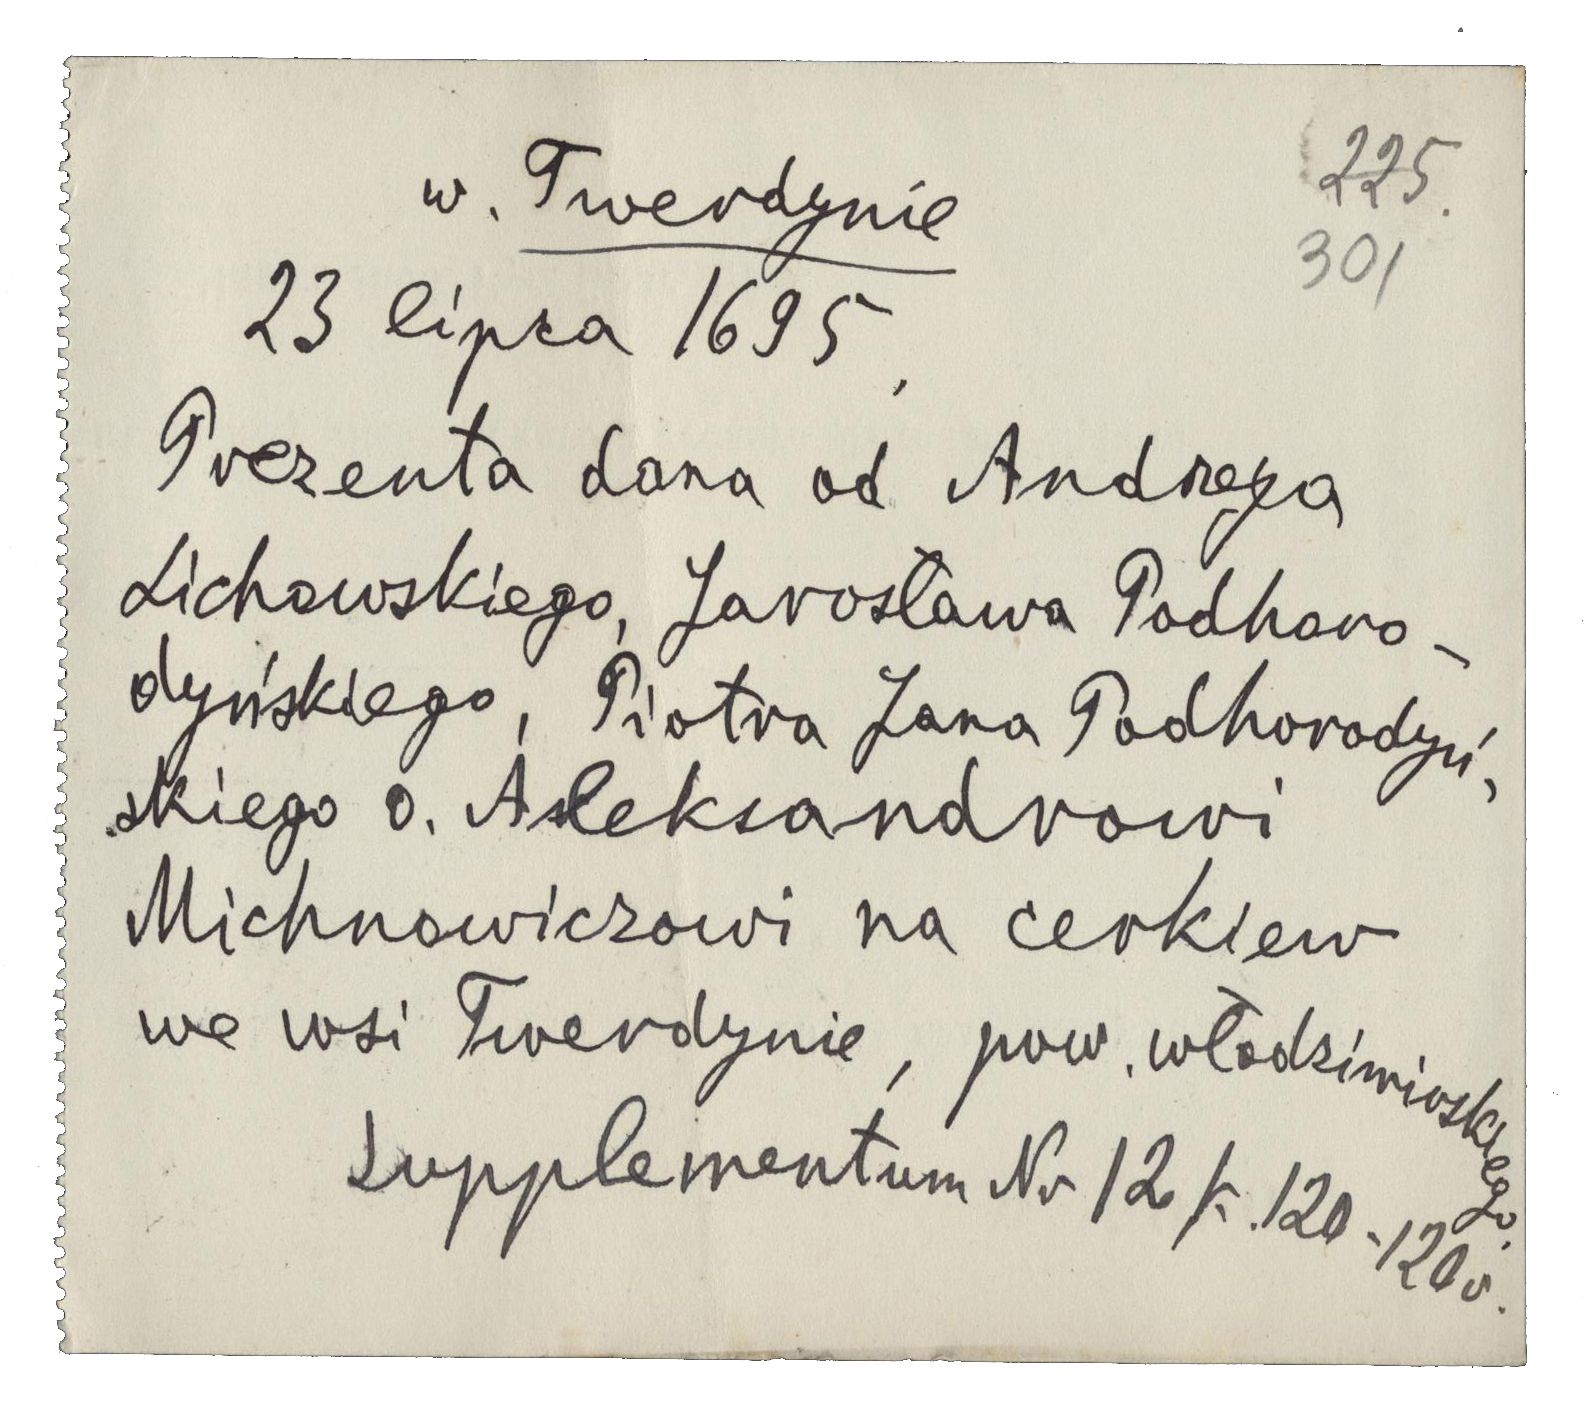 225.
w. Twerdynie
301
23 lipca 1695,
Prezenta dana od Andrzeja
Lichowskiego, Jarosława Podhoro-
dyńskiego, Piotra Jana Podhorodyń-
skiego o. Aleksandrowi
Michnowiczowi na cerkiew
we wsi Twerdynie, pow. włodzimirskiego.
Supplementum Nr 12 k. 120-120v.